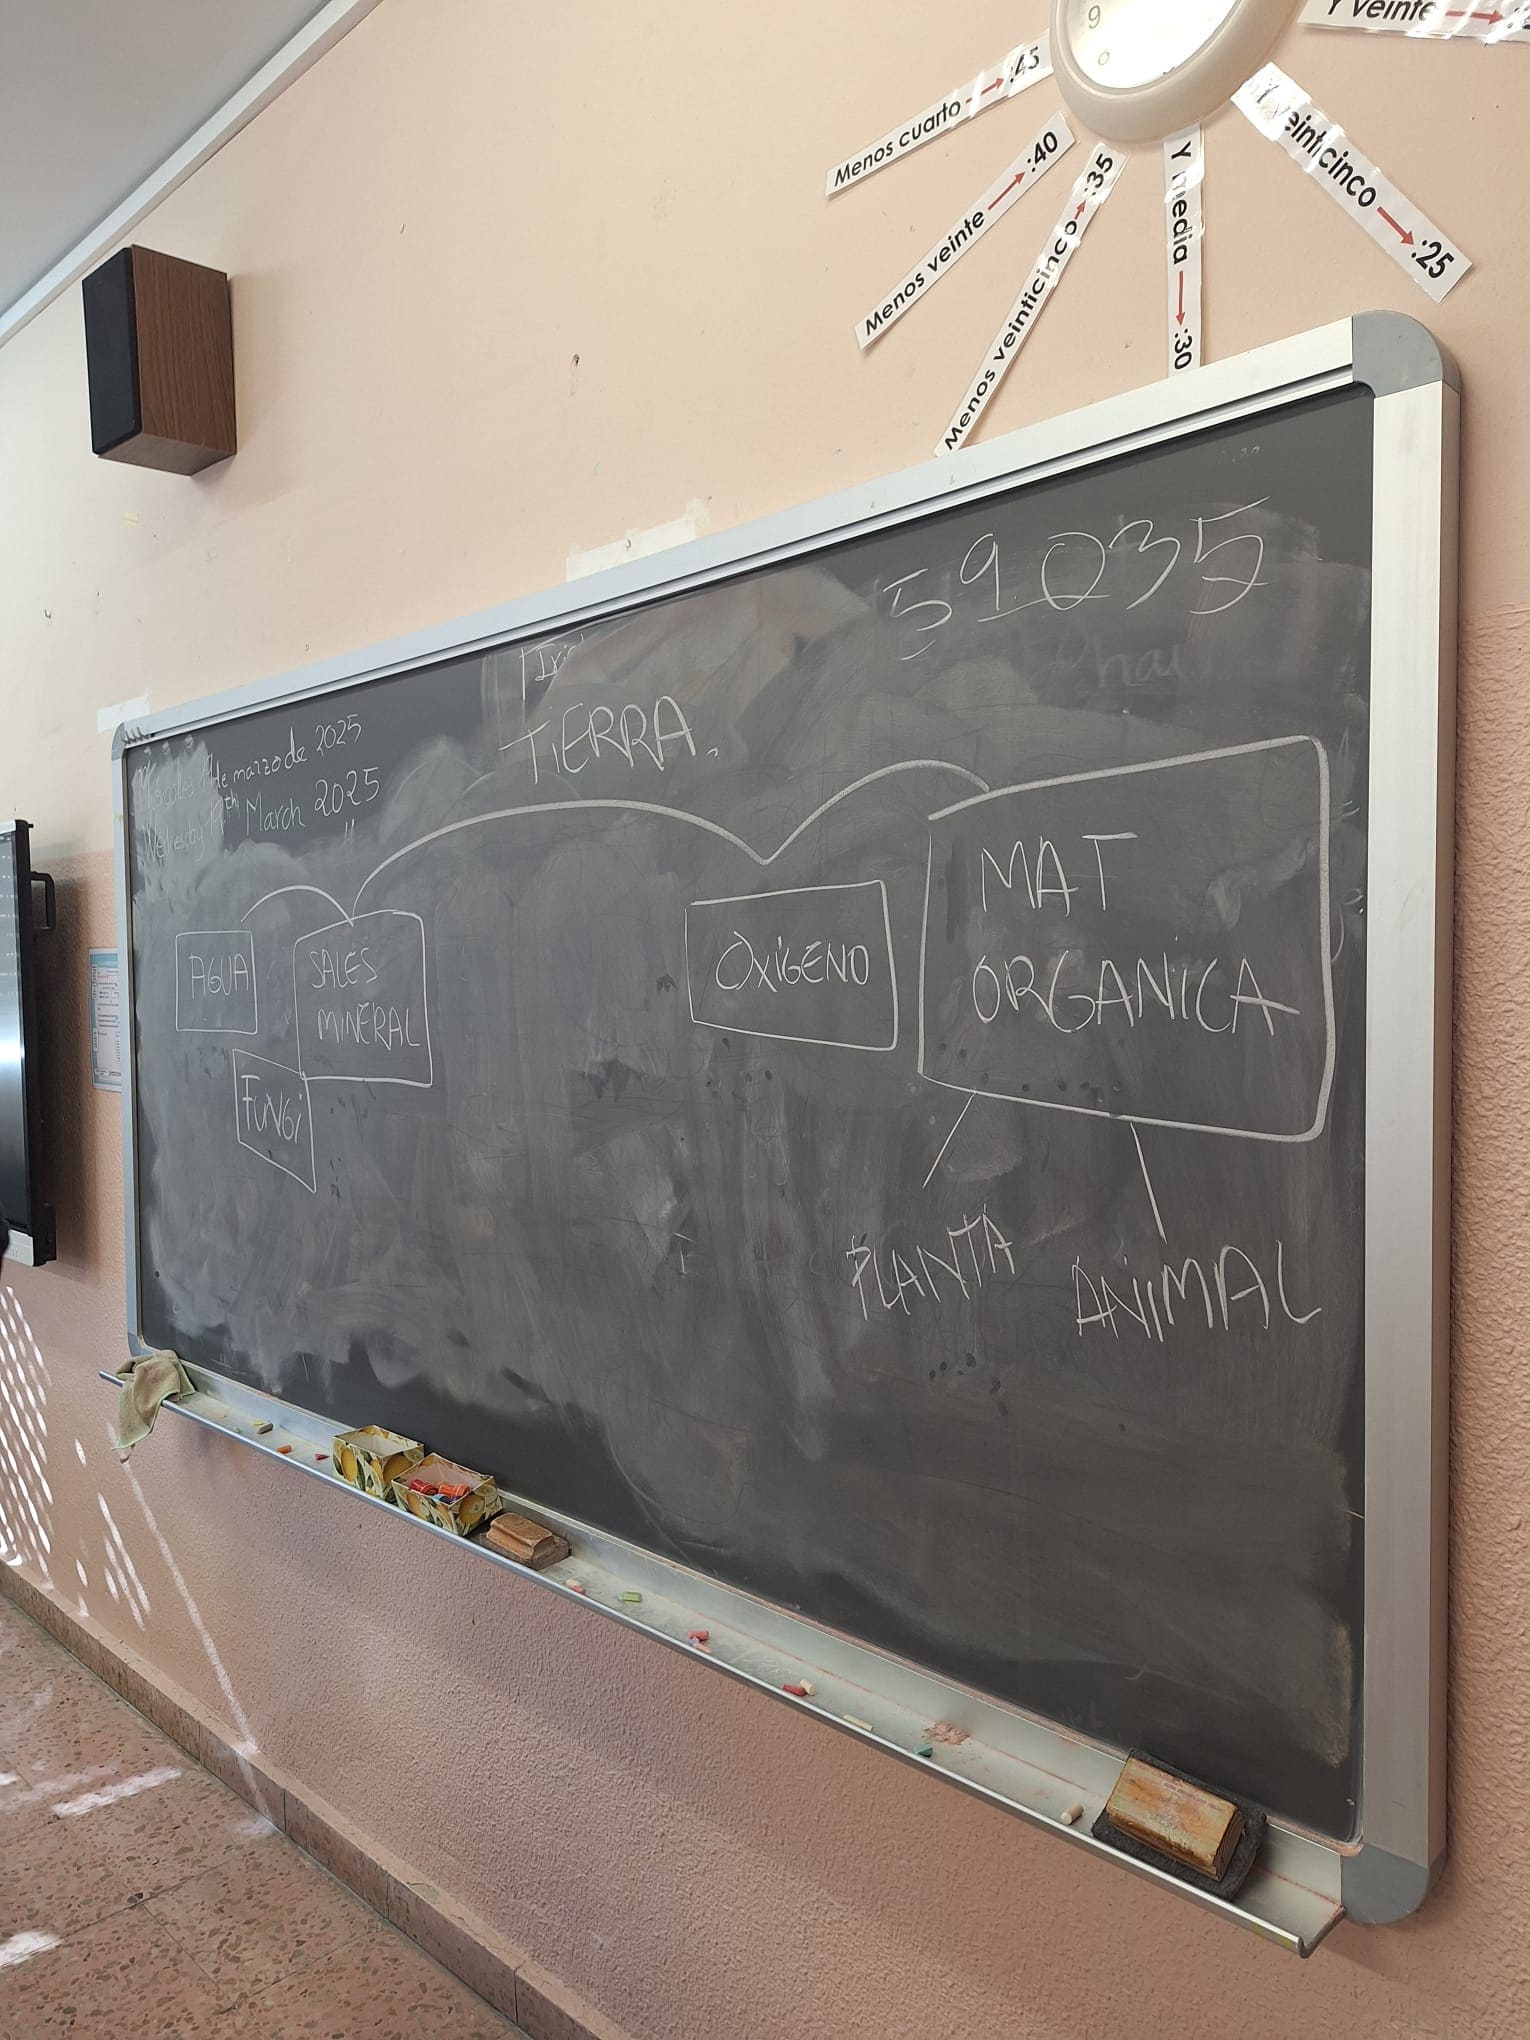 9
Y veinte
Menos cuarto → :45
Menos veinte → :40
Menos veinticinco → :35
Y media → :30
Y veinticinco → :25
59.035
TiERRA.
de marzo de 2025
March 2025
"
AGUA
SALES
MiNERAL
FUNGi
OXiGENO
MAT
ORGANiCA
PLANTA
ANiMAL